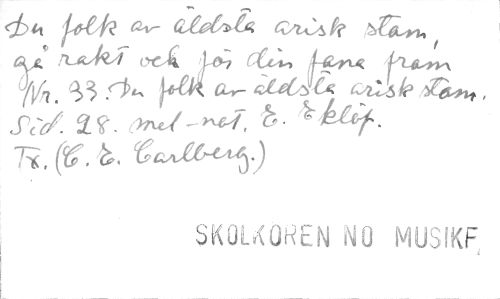 Du folk av äldsta arisk stam,
gå rakt och för din fana fram
Nr. 33. Du folk av äldsta arisk stam.
Sid. 28. mel-not. E. Eklöf.
Tx. (C. E. Carlberg.)
SKOLKÖREN NO MUSIKF